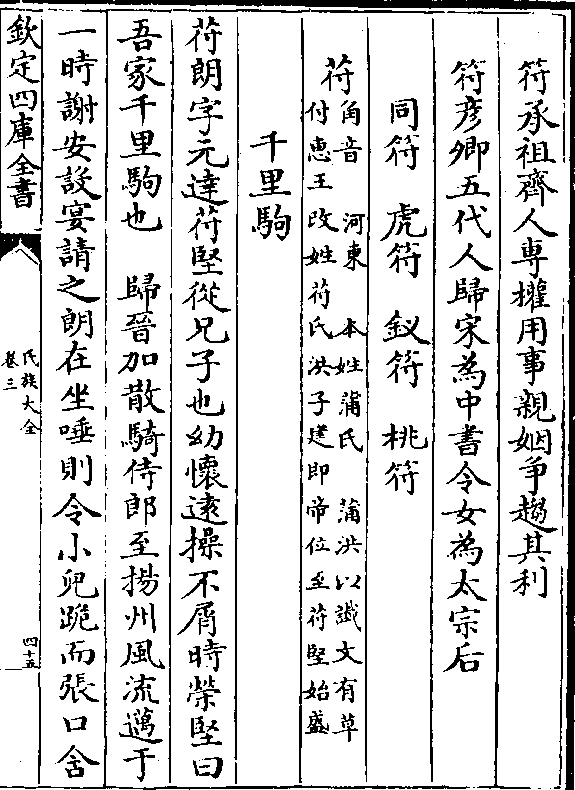 符承祖齊人専權用事親姻争趨其利
符彦卿五代人歸宋為中書令女為太宗后
同符　虎符　釵符　桃符
苻
角音　河東　本姓蒲氏　蒲洪以讖文有草
付惠王　改姓苻氏洪子建即帝位至苻堅始盛
千里駒
苻朗字元達苻堅從兄子也幼懷逺操不屑時榮堅曰
吾家千里駒也　歸晉加散騎侍郎至揚州風流邁于
一時謝安設宴請之朗在坐唾則令小兒跪而張口含
欽定四庫全書
氏族大全
卷三
四十五